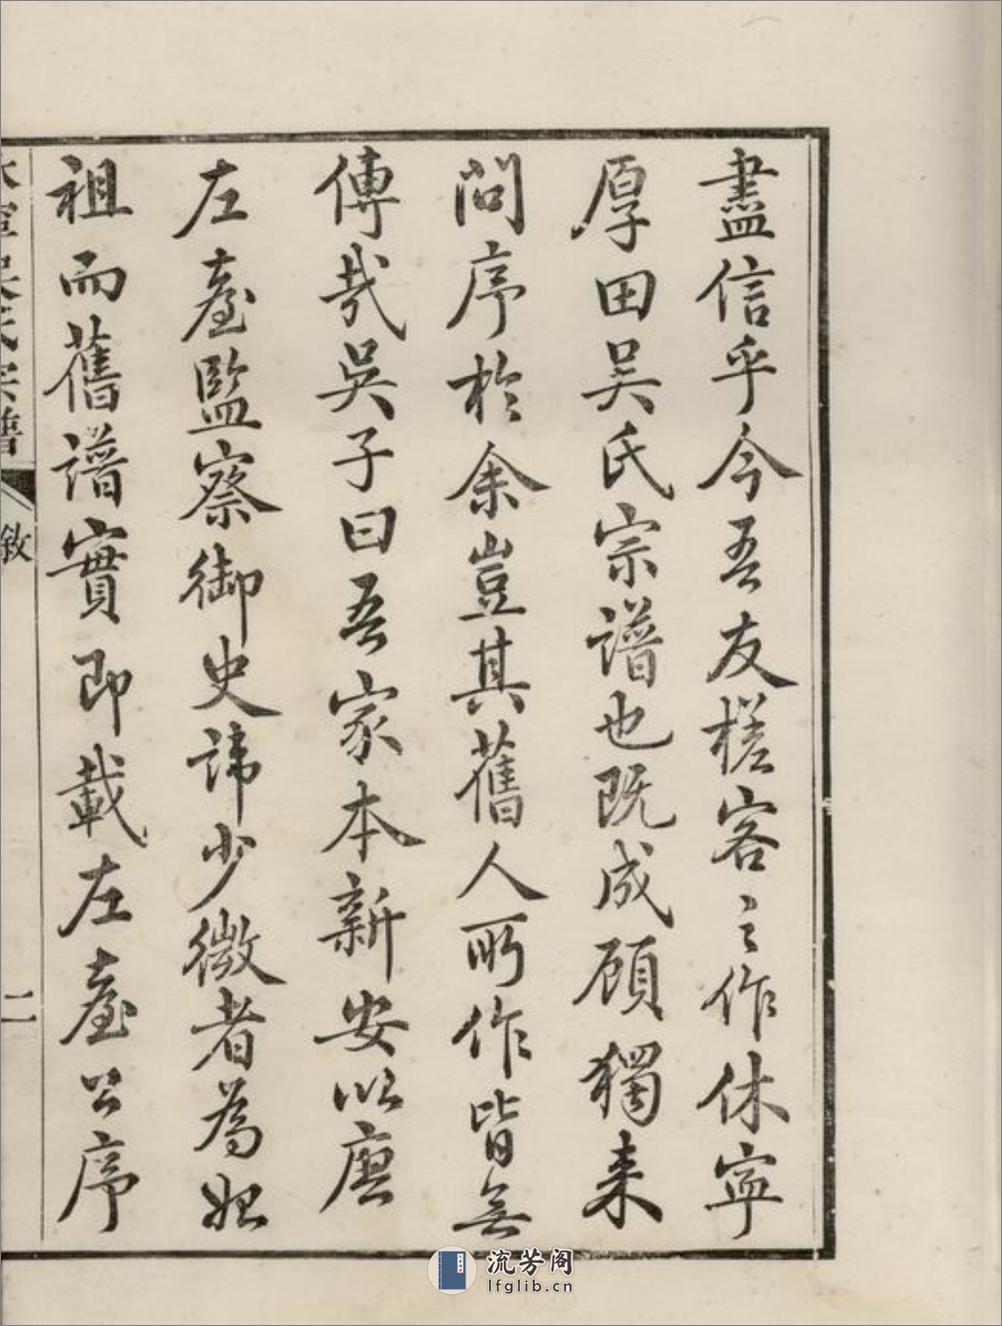 盡信乎今吾友槎客之作休寧
厚田吴氏宗譜也既成顧獨来
問序於余豈其舊人所作皆無
傳哉吳子曰吾家本新安以唐
左臺監察御史諱少微者為始
祖而舊譜實即載左臺公序
休寧吴氏宗譜
敘
二
流芳阁
lfglib.cn